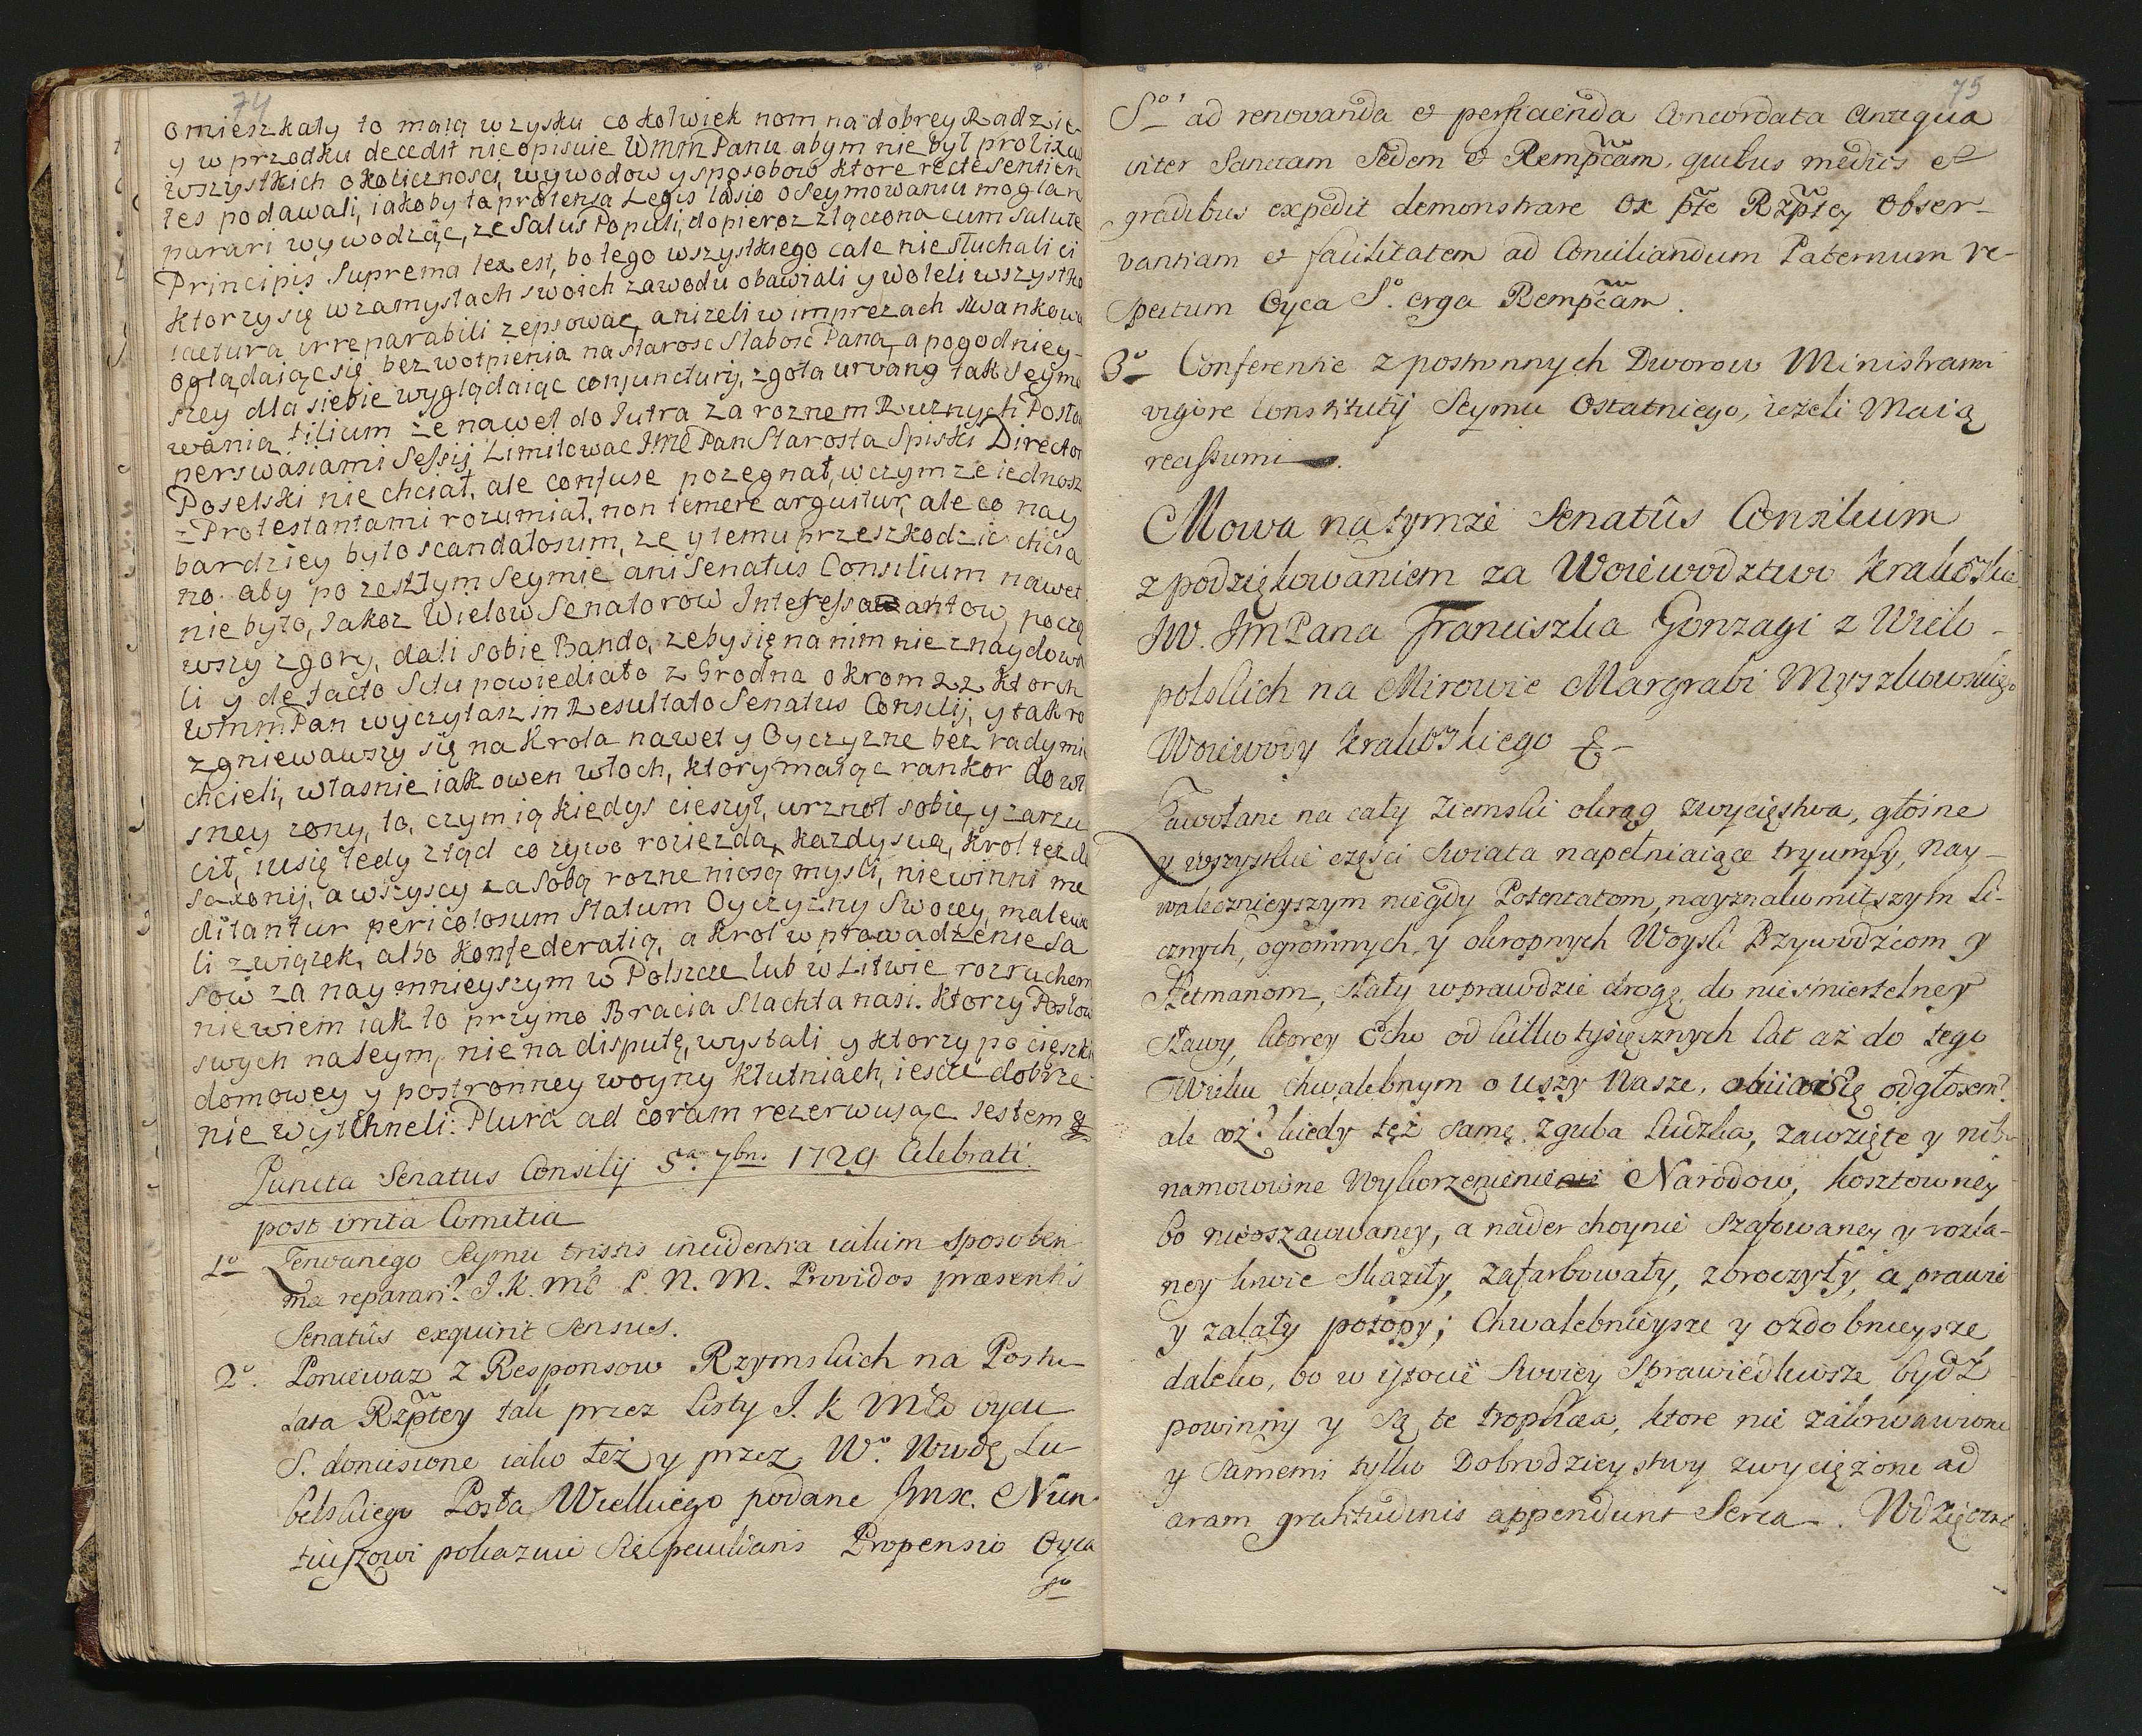 74
omieszkały to maią wzysku cokolwiek nom na dobrey Radzie
y w przodku decedit nie opisuie WmmPanu abym nie był prolixus
wszystkich okoliczności, wywodow y sposobow ktore recte sentien
tes podawali, iakoby ta protensa Legis lasio o Seymowaniu mogla re
parari wywodząc, ze Salus Populi, dopieroz złączona cum Salute
Principis Suprema lex est, bo tego wszystkiego cale nie słuchali ci
ktorzy się w zamysłach swoich zawodu obawiali y woleli wszystko
iactura irreparabili zepsowac, anizeli w imprezach swankowa
oglądaiąc się bez wotpienia na starosc Słabosc Pana, a pogodniey-
szey dla siebie wyglądaiąc conjunctury, zgoła urvano tak Seymo
wania filium ze nawet do Jutra za roznem Ruznych Posłow
perswasiami Sessij Limitowac Jmc Pan Starosta Spiski Director
Poselski nie chciał, ale confuse pozegnał, w czym ze iednosz
z Protestantami rozumiał, non temere arguitur, ale co nay
bardziey było scandalosum, ze y temu przeszkodzic chcia
no. aby po zeszłym Seymie ani Senatus Consilium nawet
nie było, Jakoz Wielow Senatorow Interessantow, poczo
wszy z gory, dali sobie Bando, zeby się na nim nie znaydowa
li y de facto Situ powiediało z Grodna okrom 22 ktorch
WmmPan wyczytasz in Resultato Senatus Consilij, y tak ro
zgniewawszy się na Krola nawet y Oyczyzne bez rady mi
chcieli, własnie iak owen włoch, ktory maiąc rankor do wł
sney zony, to, czym ią kiedys cieszył, urznoł sobie, y zarzu
cił, iusię tedy ztąd co zywo roziezda, kazdy swą, Krol tez do
Saxonij, a wszyscy za sobą rozne niosą mysli, niewinni me
ditantur periculosum Statum Oyczyzny Swoiey, malewo
li związek, albo Konfederatią, a Krol wprowadzenie Sa
sow za naymnieyszym w Polszcze lub w Litwie rozruchem
niewiem iak to przymo Bracia Slachta nasi. Ktorzy Posłow
swych na Seym, nie na disputę, wysłali y ktorzy po cięszki
domowey y postronney woyny kłutniach, iescze dobrze
nie wytchneli: Plura ad coram rezerwując Jestem &
Puncta Senatus Consilij 5ta 7bris 1729 Celebrati
post irrita Comitia
1o Zerwanego Seymu tristis incidentia iakim sposobem
ma reparari? J. K. Mć P. N. M. Providos praesentis
Senatûs exquirit Sensus.
2o. Poniewaz z Responsow Rzymskich na Postu-
lata Rzptey tak przez listy J. K Mći Oycu
S. doniesione iako też y przez Wo. Wwdę Lu-
belskiego Posła Wielkiego podane Jmx. Nun-
tiuszowi pokazuie się peculiaris Propensio Oyca
So
75
So ad renovanda et perficienda Concordata Antiqua
inter Sanctam Sedem et Rempcam, quibus mediis et
gradibus expedit demonstrare ex pte Rzptey Obser-
vantiam et facilitatem ad Conciliandum Paternum re-
spectum Oyca So. erga Rempcam.
3o Conferentie z postronnych Dworow Ministrami
vigore Constitutij Seymu Ostatniego, ieżeli Maią
reassumi.
Mowa na tymże Senatûs Consilium
z podziękowaniem za Woiewodztwo Krakowskie
Jw. Jm Pana Franciszka Gonzagi z Wielo-
polskich na Mirowie Margrabi Myszkowskiego
Woiewody Krakowskiego &-
Zawołane na cały Ziemski okrąg zwycięstwa, głośne
y wszyskie części Swiata napełniaiące tryumfy, nay-
walecznieyszym niegdy Potentatom, nayznakomitszym li-
cznych, ogromnych y okropnych Woysk Przywodźcom y
Hetmanom, słały wprawdzie drogę do nieśmiertelney
Sławy, ktorey Echo od kilku tysięcznych lat aż do tego
Wieku chwalebnym o uszy Nasze, obiia się odgłosem?
ale coż? kiedy tęż samę zguba ludzka, zawzięte y nie-
namowione Wykorzenienie Narodow, kosztowney
bo nieoszacowaney, a nader choynie szafowaney y rozla-
ney krwie skaziły, zafarbowały, zbroczyły, a prawie
y zalały potopy; Chwalebnieysze y ozdobnieysze,
daleko, bo w istocie swoiey Sprawiedliwsze bydź
powinny y są te trophaea, ktore nie zakrwawione
y samemi tylko Dobrodzieystwy zwyciężone ad
aram gratitudinis appendunt Serca. Wdzięczne